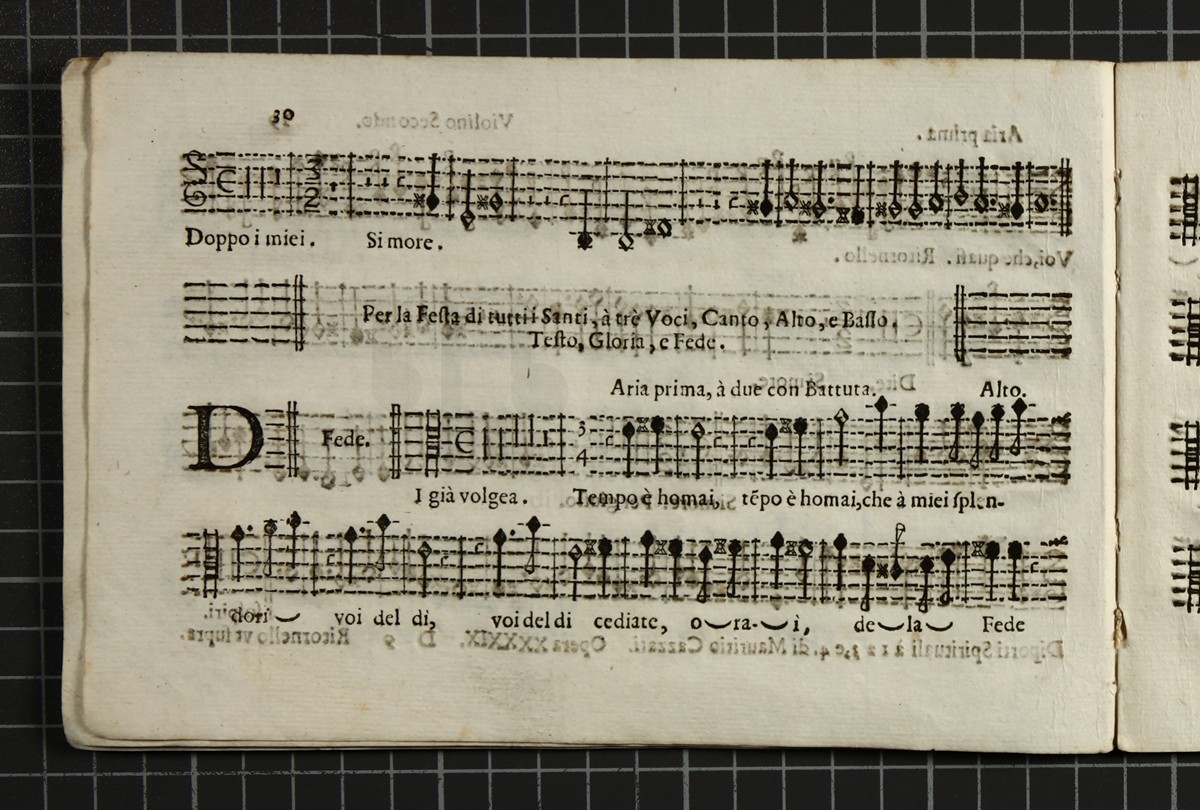 30
Doppo i miei. Si more.
Per la Feſta di tutti i Santi, à trè Voci, Canto, Alto, e Baſſo.
Teſto, Gloria, e Fede.
Aria prima, à due con Battuta. Alto.
D Fede. 3 4
I già volgea. Tempo è homai, tẽpo è homai, che à miei ſplen-
dori voi del dì, voi del di cediate, o ra- i, de la Fede